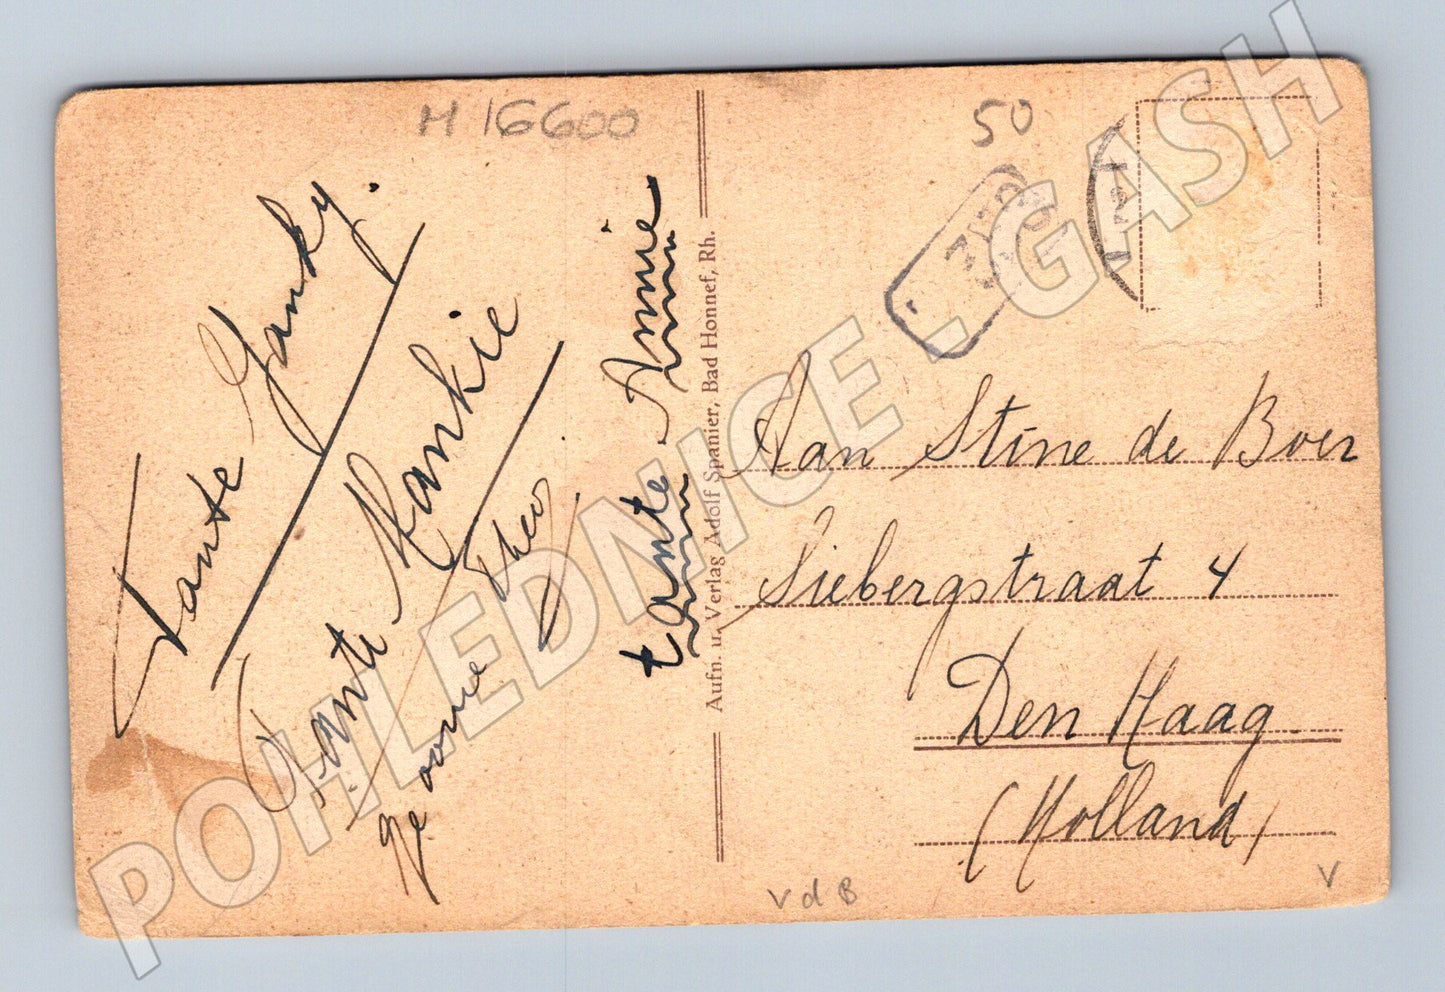 M 16600
Tante Janky.
Tante Mankie
gewone Theo.
tante Annie
Aufn. u. Verlag Adolf Spanier, Bad Honnef, Rh.
50
Aan Stine de Boer
Siebergstraat 4
Den Haag
(Holland)
V d B
V
POHLEDNICE - GASH